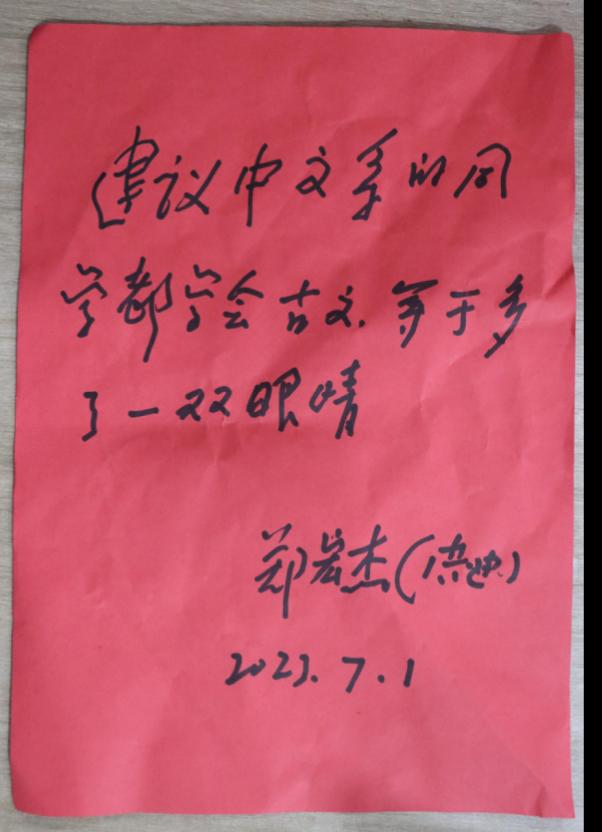 建议中文系的同
学都学会古文.等于多
了一双眼睛
郑宏杰(洪迪)
2023.7.1